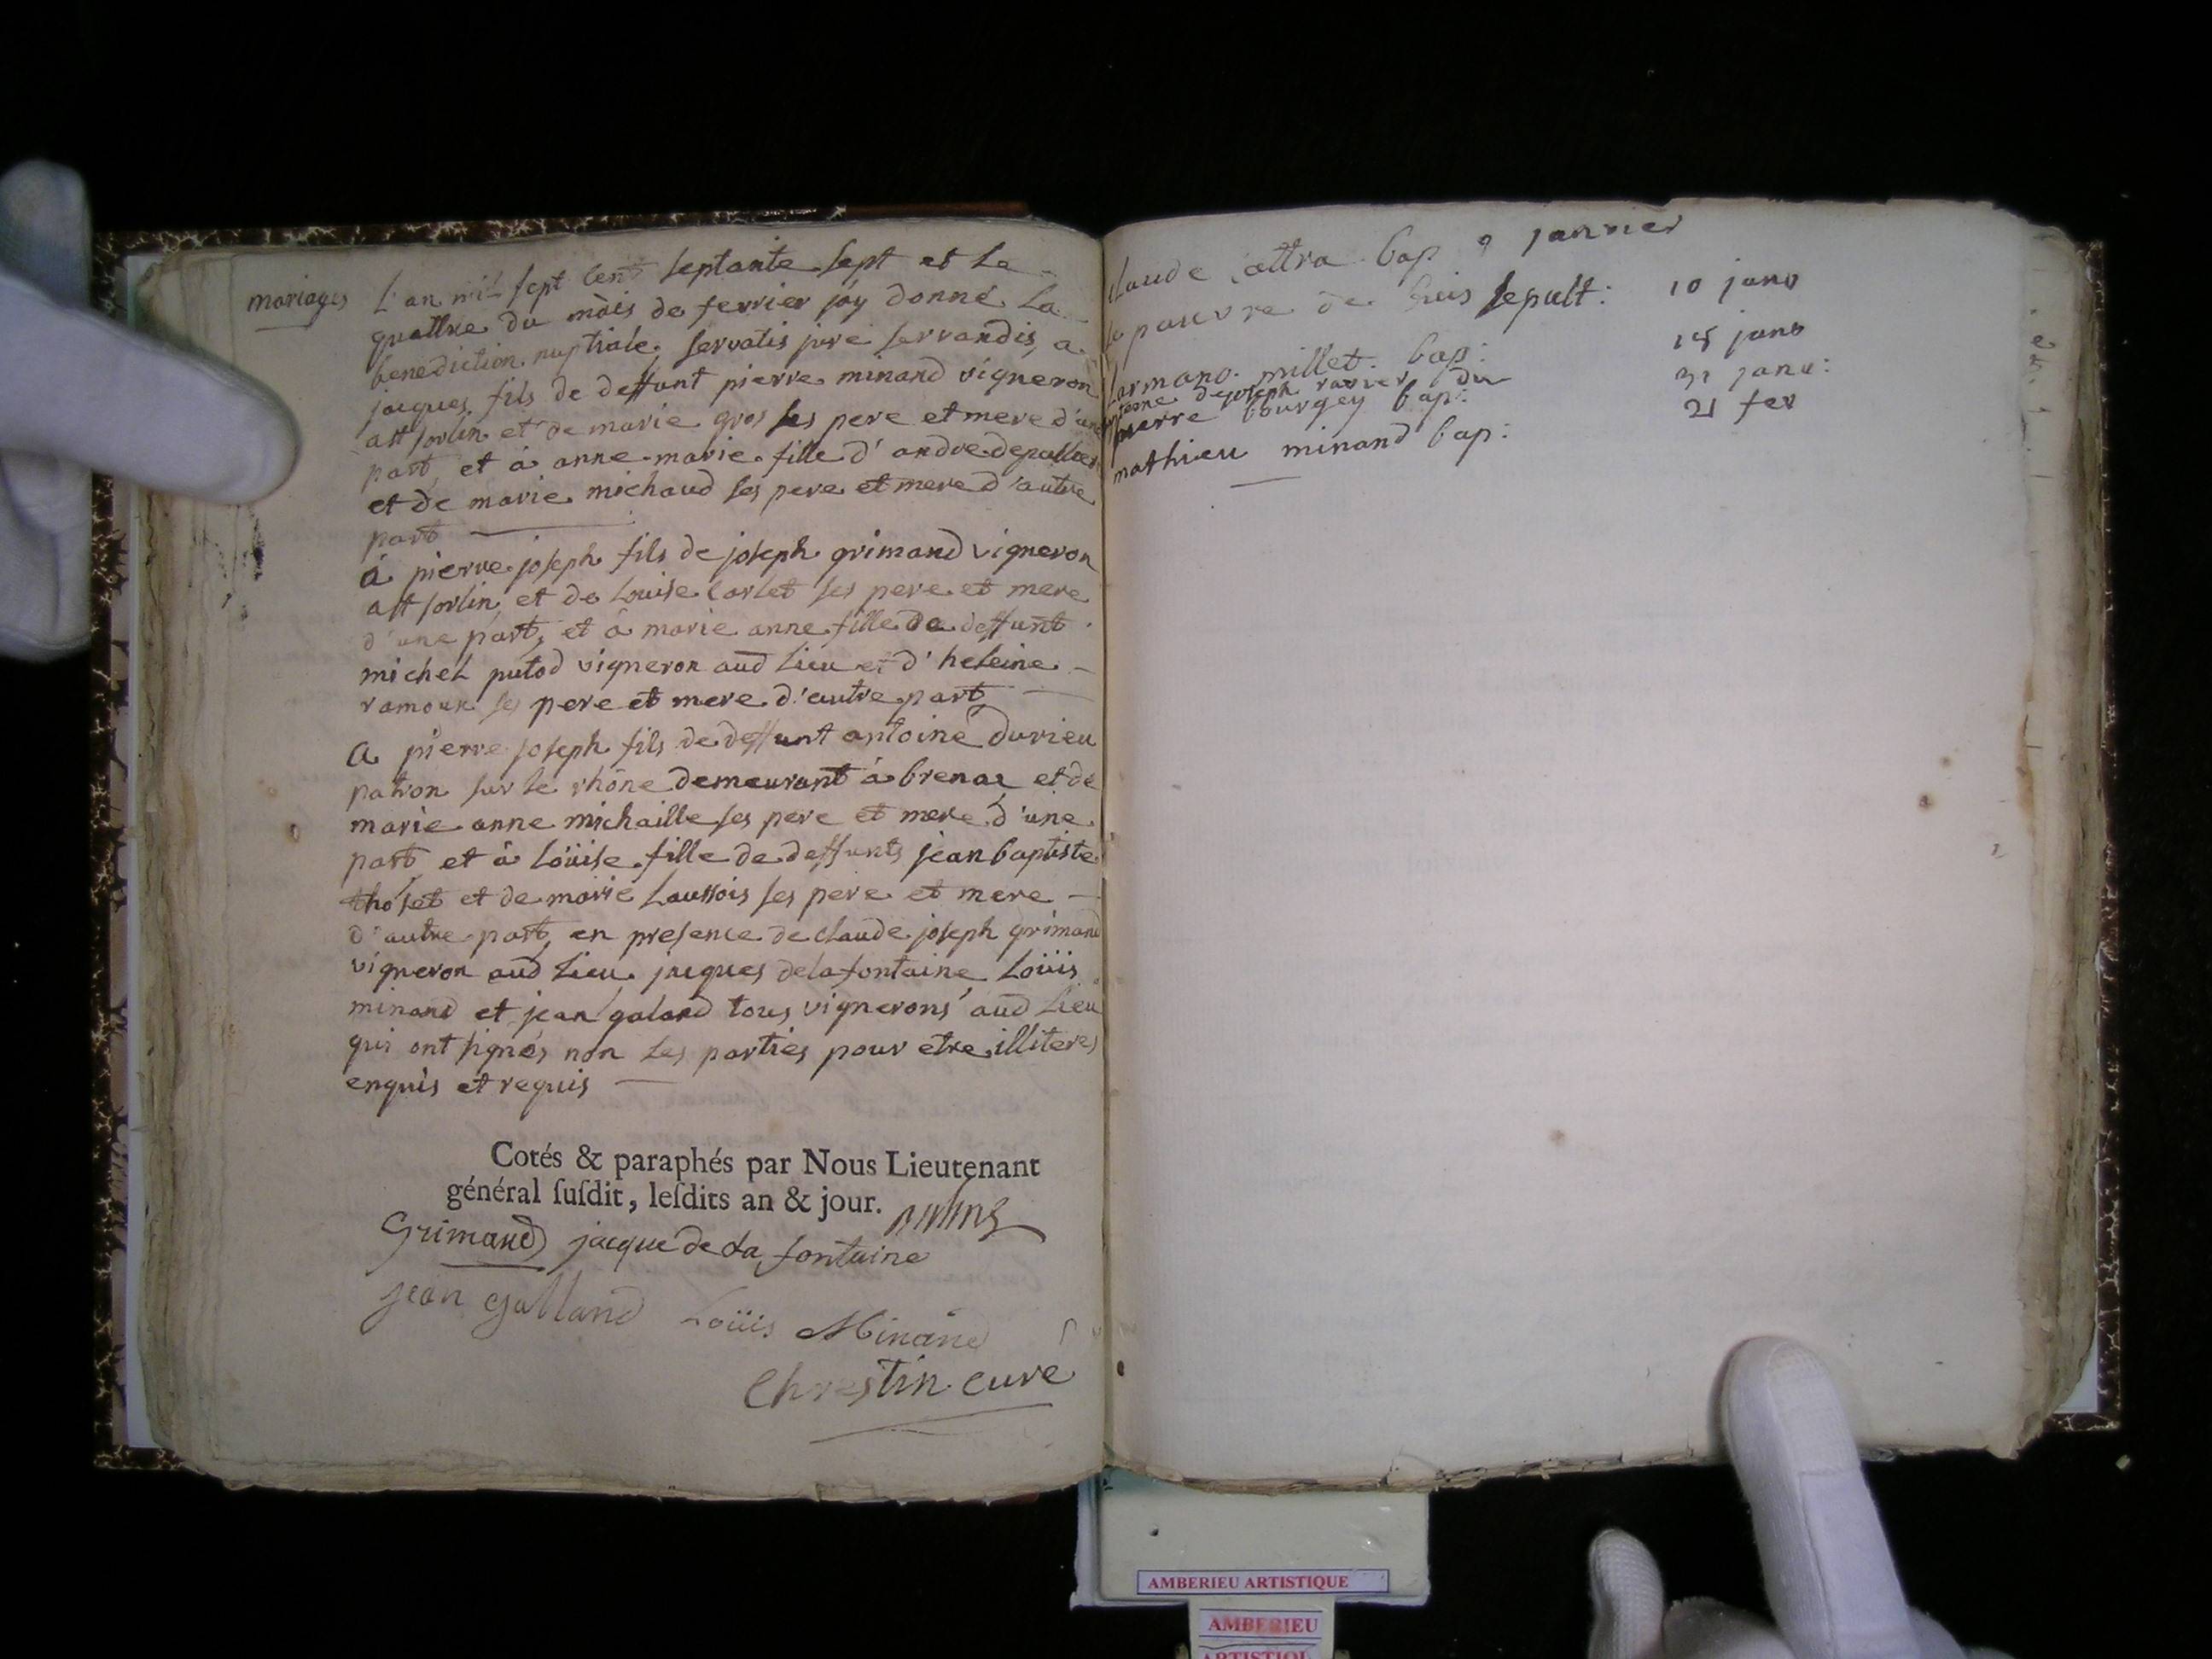 mariages
L'an mil sept cent septante sept et le
quattre du mois de fevrier j'ay donné la
benediction nuptiale servatis jure servandis, a
jacques fils de deffunt pierre minand vigneron
a st sorlin et de marie gros ses pere et mere d'une
part, et à anne marie fille d'andre depallier
et de marie michaud ses pere et mere d'autre
part
à pierre joseph fils de joseph grimand vigneron
a st sorlin et de Louise Carlet ses pere et mere
d'une part, et à marie anne fille de deffunt
michel putod vigneron aud lieu et d'heleine
ramoux ses pere et mere d'autre part
a pierre joseph fils de deffunt antoine Durieu
patron sur le rhône demeurant à brenaz et de
marie anne michaille ses pere et mere d'une
part, et à Loüise fille de deffunts jean baptiste
thoset et de marie Laussois ses pere et mere
d'autre part, en presence de claude joseph grimand
vigneron aud lieu jacques delafontaine, Loüis
minand et jean galand tous vignerons aud lieu
qui ont signés non les parties pour etre illiteres
enquis et requis
Cotés & paraphés par Nous Lieutenant
général susdit, lesdits an & jour.
Grimand jacque de La fontaine
jean galland Loüis Minand
Chrestin curé
claude cattra bap 9 janvier
le pauvre de sepult: 10 janv
millet bap: 18 janv
de joseph ravier du
pierre bourgey bap: 31 janv:
mathieu minand bap: 21 fev
AMBERIEU ARTISTIQUE
AMBERIEU
ARTISTIQUE